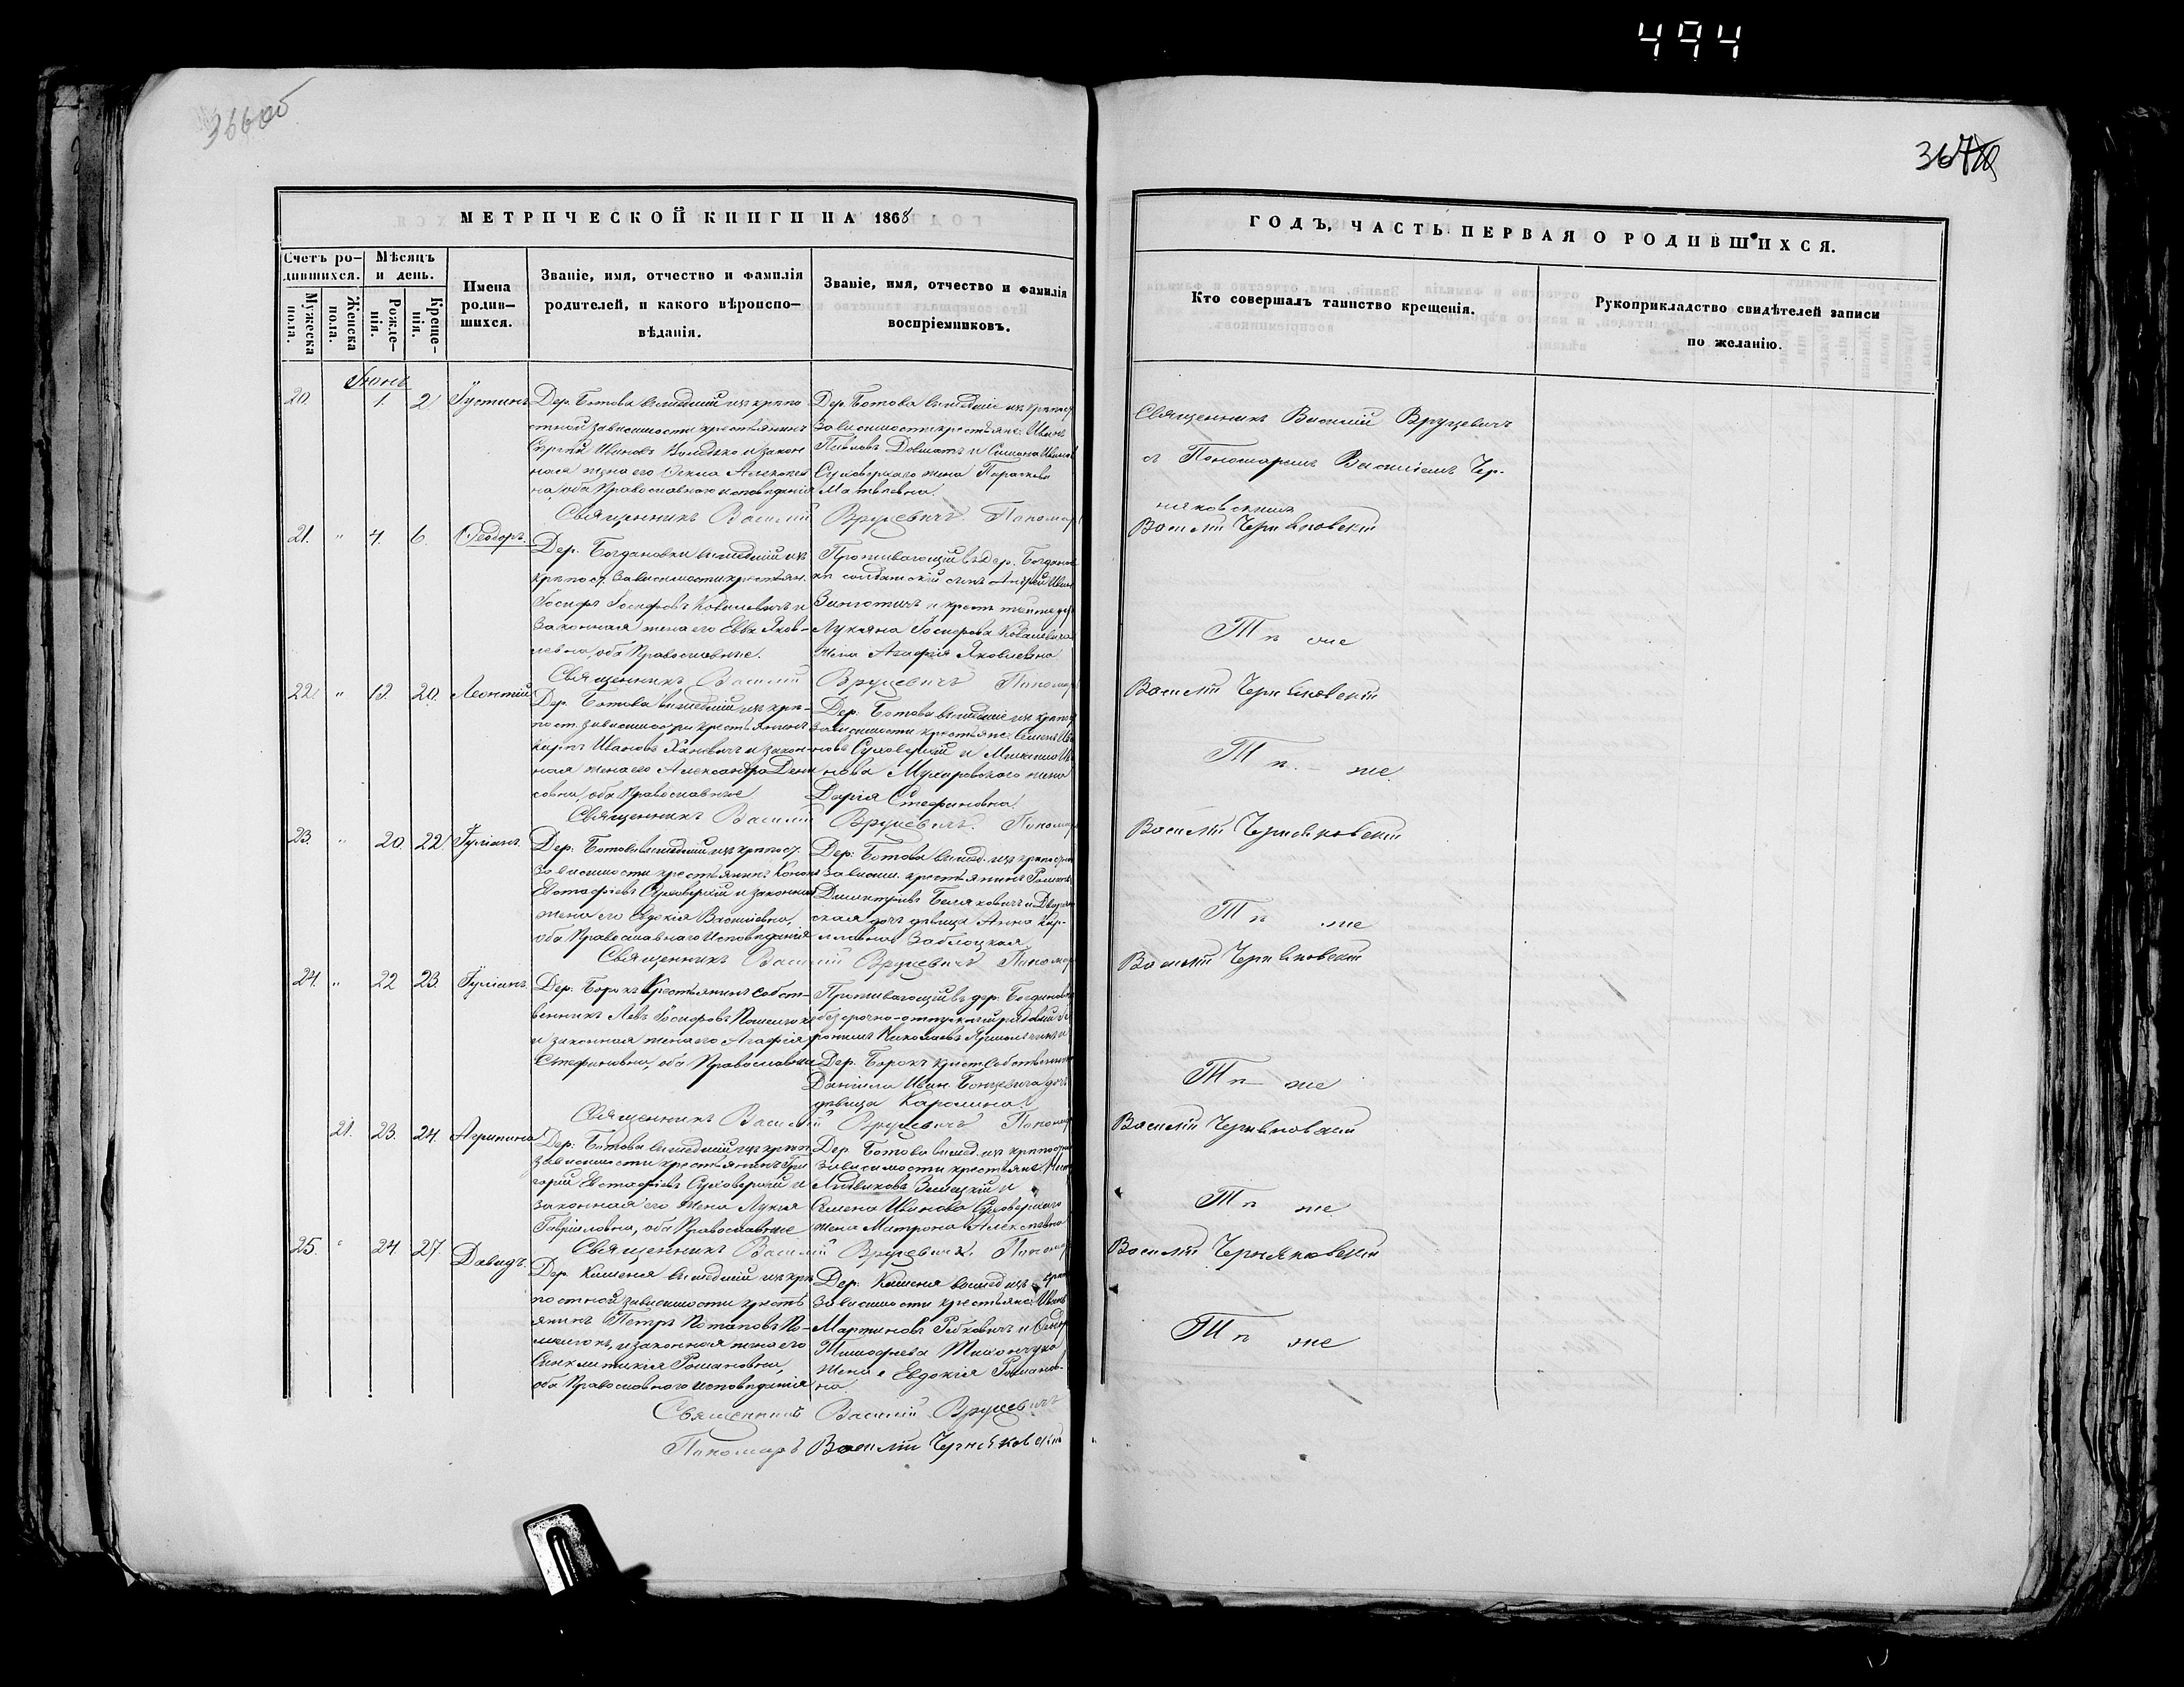 494
366об
367
МЕТРИЧЕСКОЙ КНИГИ НА 1868
ГОДЪ, ЧАСТЬ ПЕРВАЯ О РОДИВШИХСЯ.
Счетъ ро-
дившихся.
Мужеска
пола.
Женска
пола.
Мѣсяцъ
и день.
Рожде-
нія.
Креще-
нія.
Имена
родив-
шихся.
Званіе, имя, отчество и фамилія
родителей, и какого вѣроиспо-
вѣданія.
Званіе, имя, отчество и фамилія
воспріемниковъ.
Кто совершалъ таинство крещенія.
Рукоприкладство свидѣтелей записи
по желанію.
Іюнь
20. 1. 2. Іустинъ
Дер. Ботова вышедшій изъ крѣпо
стной зависимости крестьянинъ
Сергій Ивановъ и закон
ная жена его Ѳекла Алексѣев
на, оба Православнаго исповѣданія
Дер. Ботова вышедшіе изъ крѣпост
зависимости крестьяне: Иванъ
Павловъ и Симона Иванов
Суховерхаго жена Параскева
Матвѣевна.
Священникъ Василій Вруцевичъ
съ Пономаремъ Василіемъ Чер-
няковскимъ
Священникъ Василій Вруцевичъ. Пономарь
Василій Черняковскій
21. " 4. 6. Ѳеодоръ.
Дер. Богдановки вышедшій изъ
крѣпост. зависимости крестьян.
Іосифъ Іосифовъ Ковалевичъ и
законная жена его Евва Яков-
левна, оба Православные.
Проживающій въ дер. Богданов
кѣ солдатскій сынъ Андрей Иван
и крест. той же дер
Лукьяна Іосифова Ковалевича
жена Агафія Яковлевна
Тѣ же
Священникъ Василій Вруцевичъ Пономарь
Василій Черняковскій
22. " 19. 20. Леонтій
Дер. Ботова вышедшій изъ крѣ-
пост. зависимости крестьянинъ
Карпъ Ивановъ и закон-
ная жена его Александра Дени
совна, оба Православные
Дер. Ботова вышедшіе изъ крѣпост
зависимости крестьяне: Семенъ Ива
новъ Суховерхій и Ив
нова жена
Дарія Стефановна.
Тѣ - же.
Священникъ Василій Вруцевичъ. Пономарь
Василій Черняковскій
23. " 20. 22. Іуліанъ.
Дер. Ботова вышедшій изъ крѣпост.
зависимости крестьянинъ Кононъ
Евстафіевъ Суховерхій и законная
жена его Евдокія Василіевна,
оба Православнаго Исповѣданія
Дер. Ботова вышед. изъ крѣпостной
зависим. крестьянинъ Романъ
Димитріевъ Беляковичъ и Дворян
ская дочь дѣвица Анна Кар-
ловна Заблоцкая
Тѣ же
Священникъ Василій Вруцевичъ Пономарь
Василій Черняковскій
24. " 22 23. Іуліанъ.
Дер. Борокъ Крестьянинъ собст-
венникъ Левъ Іосифовъ
и законная жена его Агафія
Стефановна, оба Православные
Проживающій въ дер. Богдановкѣ
безсрочно-отпускной рядовой
Николаевъ и
Дер. Борокъ крест. собственника
Даніила Иван. дочь
дѣвица Каролина.
Тѣ - же
Священникъ Василій Вруцевичъ Пономарь
Василій Черняковскій
21. 23. 24. Агрипина
Дер. Ботова вышедшій изъ крѣпост
зависимости крестьянинъ Гри
горій Евстафіевъ Суховерхій и
законная его жена Лукія
Гавріиловна, оба Православные
Дер. Ботова вышед. изъ крѣпостной
зависимости крестьяне:
и
Семена Иванова Суховерхаго
жена Матрона Алексѣевна
Тѣ же
Священникъ Василій Вруцевичъ. Пономарь
Василій Черняковскій
25. " 24 27. Давидъ.
Дер. Каменя вышедшій изъ крѣ
постной зависимости кресть
янинъ Петръ Потаповъ
и законная жена его
Синклитикія Романовна,
оба Православнаго Исповѣданія
Дер. Каменя вышед. изъ крѣп
зависимости крестьяне: Иванъ
Мартиновъ и
Тимофеева
жена Евдокія Романов-
на.
Тѣ же
Священникъ Василій Вруцевичъ
Пономарь Василій Черняковскій